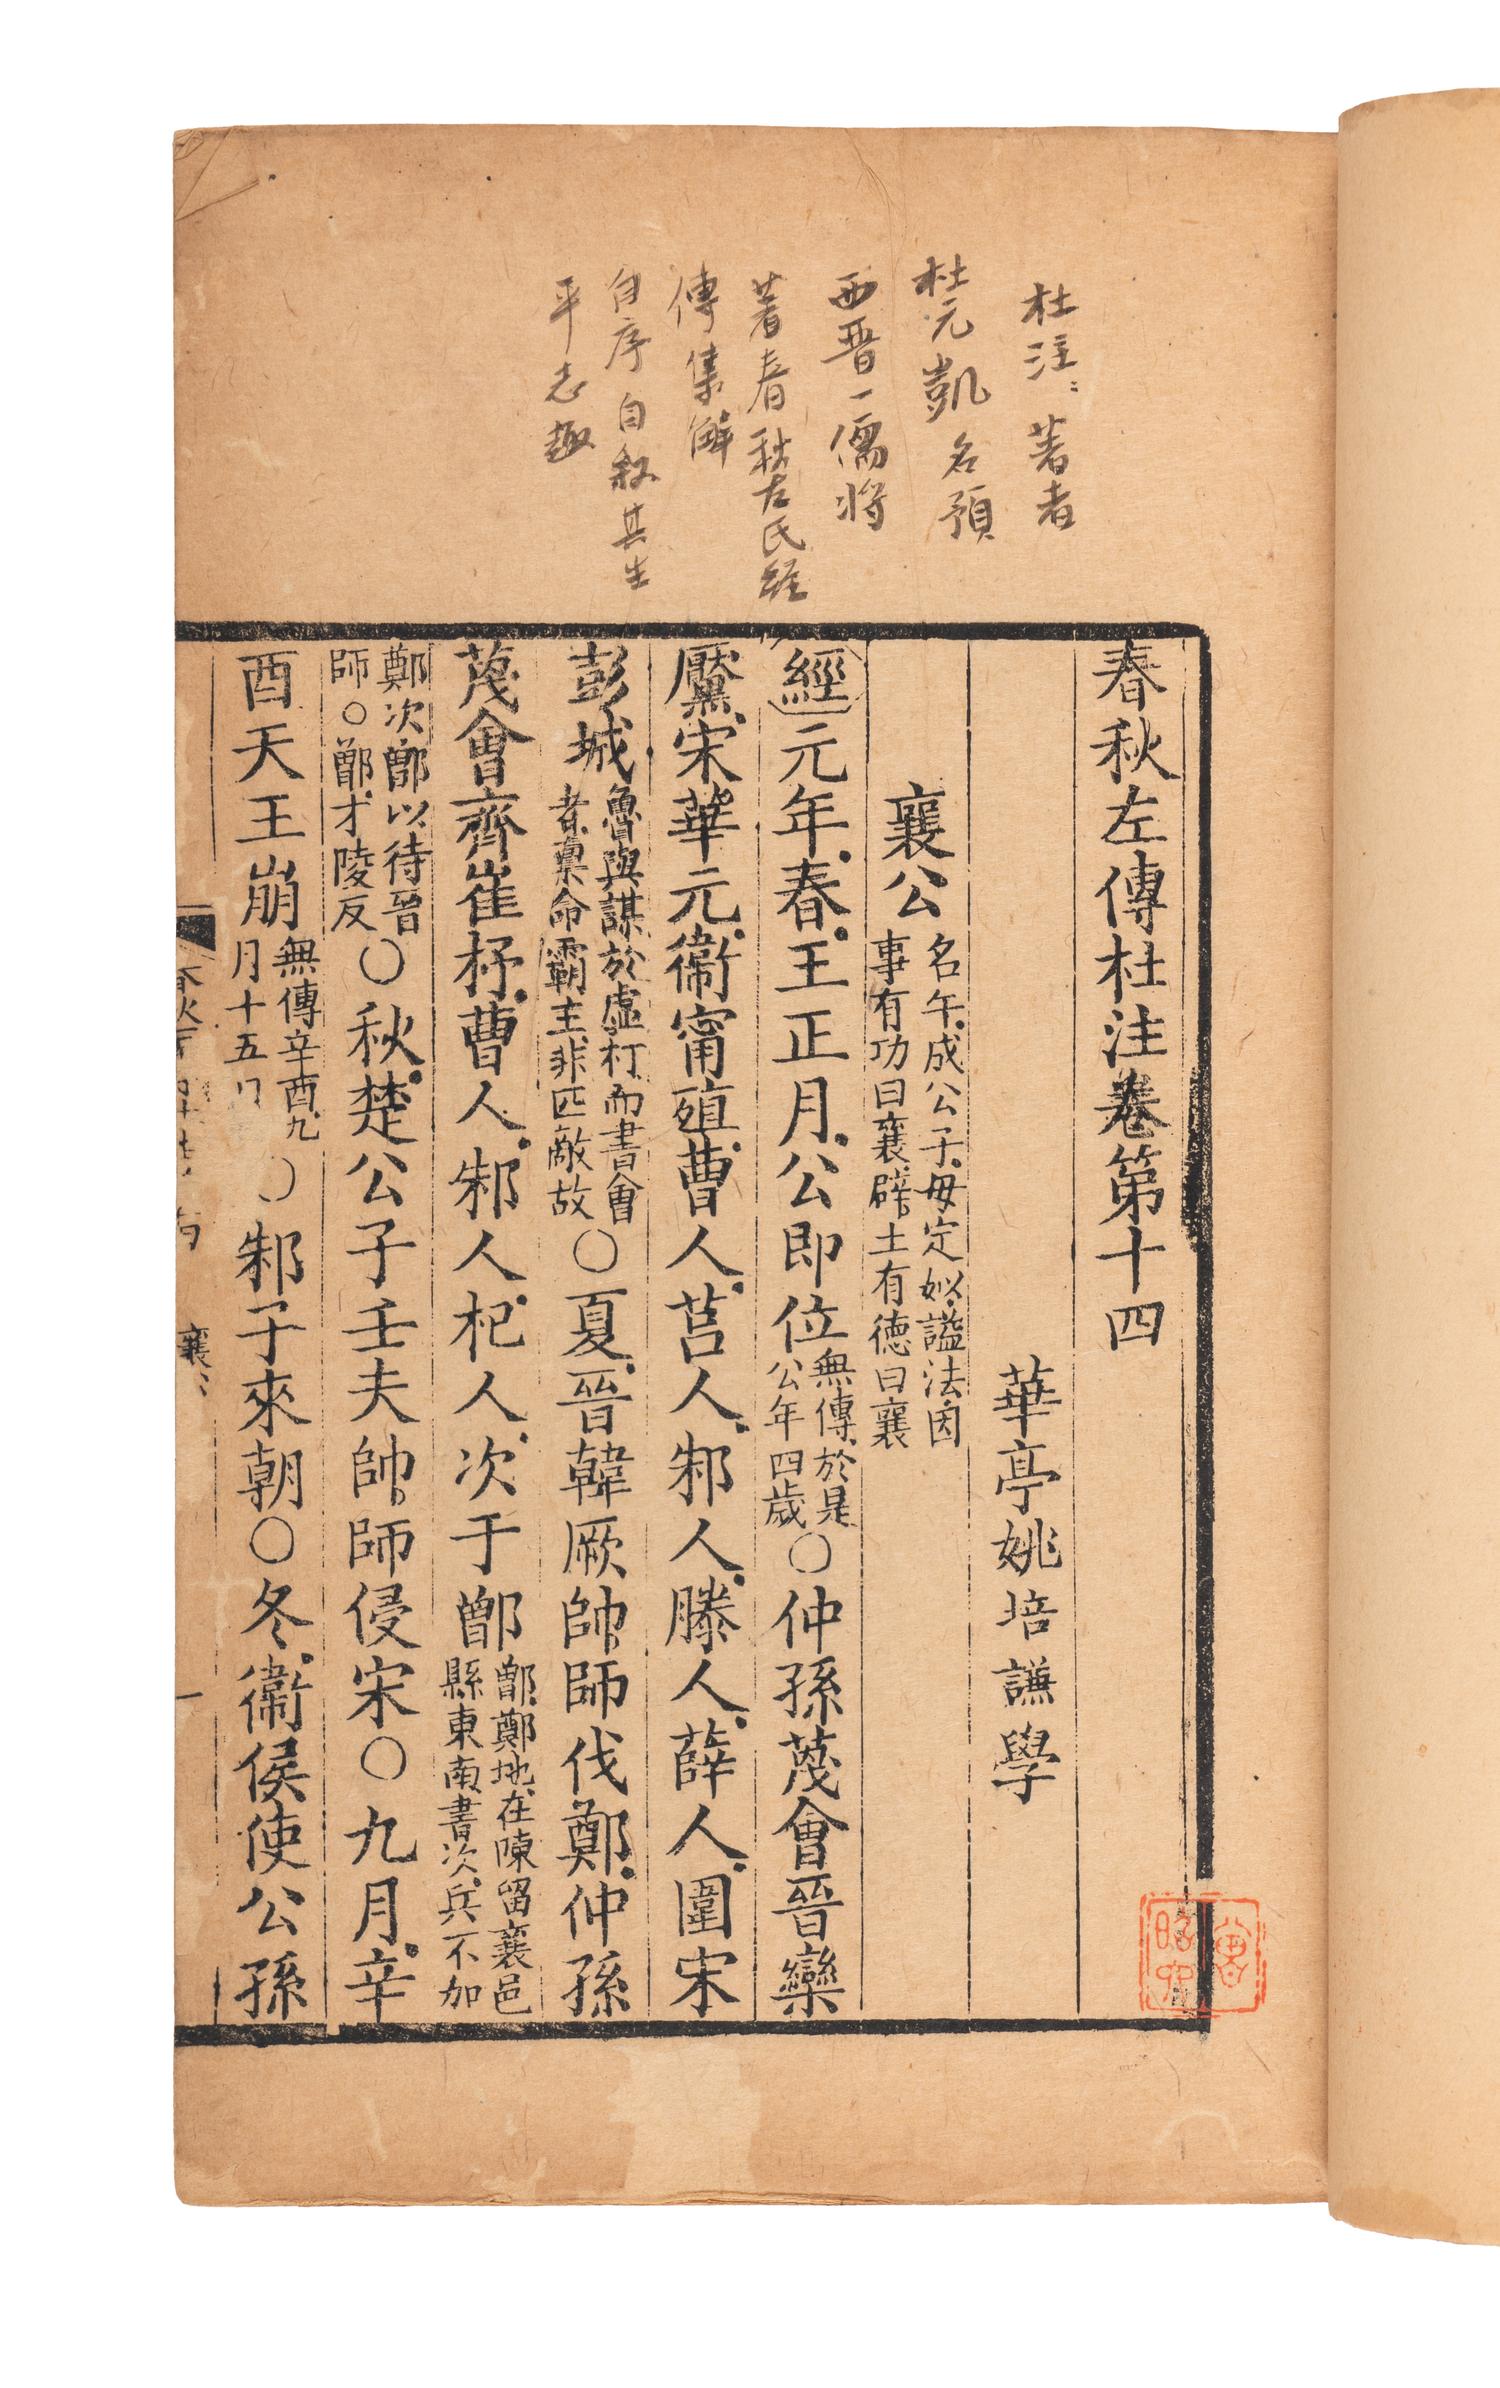 杜注：著者
杜元凱名預
西晋一儒将
著春秋左氏經
傳集解
自序自叙其生
平志趣
春秋左傳杜注卷第十四
華亭姚培謙學
襄公名午成公子母定姒謚法因
事有功曰襄辟土有德曰襄
經元年春王正月公即位無傳於是
公年四歲○仲孫蔑會晉欒
黶宋華元衞甯殖曹人莒人邾人滕人薛人圍宋
彭城魯與謀於虛朾而書會
者稟命霸主非匹敵故○夏晉韓厥帥師伐鄭仲孫
蔑會齊崔杼曹人邾人杞人次于鄫鄫鄭地在陳留襄邑
縣東南書次兵不加
鄭次鄫以待晉
師○鄫才陵反○秋楚公子壬夫帥師侵宋○九月辛
酉天王崩無傳辛酉九
月十五日○邾子來朝○冬衞侯使公孫
襄
一